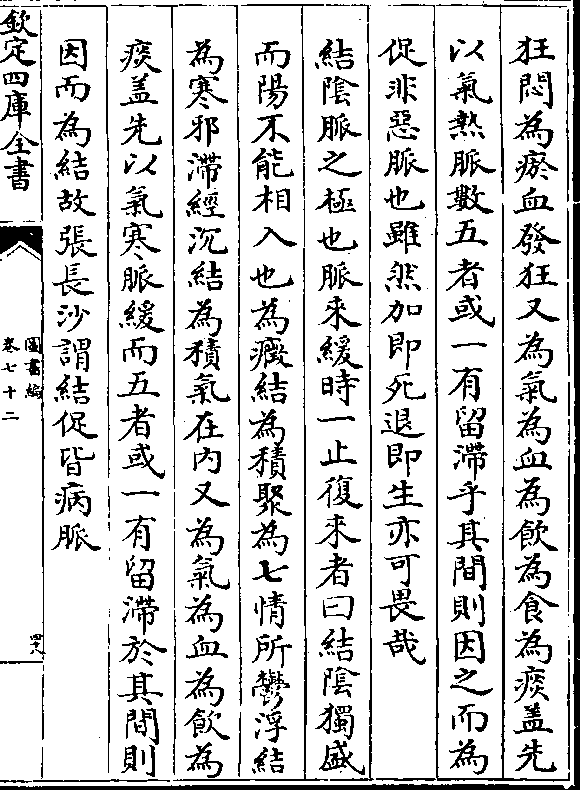 狂悶為瘀血發狂又為氣為血為飲為食為痰盖先
以氣熱脈數五者或一有留滯乎其間則因之而為
促非惡脈也雖然加即死退即生亦可畏哉
結陰脈之極也脈來緩時一止復來者曰結陰獨盛
而陽不能相入也為癥結為積聚為七情所鬱浮結
為寒邪滯經沉結為積氣在内又為氣為血為飲為
痰盖先以氣寒脈緩而五者或一有留滯於其間則
因而為結故張長沙謂結促皆病脈
欽定四庫全書
圖書編
卷七十二
四十八